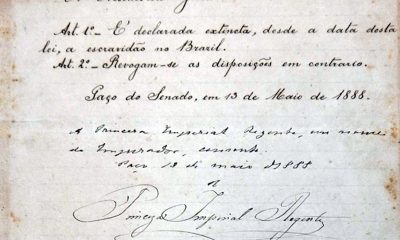 Art. 1º – É declarada extincta, desde a data desta
lei, a escravidão no Brazil.
Art. 2º – Revogam-se as disposições em contrario.
Paço do Senado, em 13 de Maio de 1888.
A Princesa Imperial Regente, em nome
do Imperador, consente.
Paço 13 de maio de 1888
Imperial Regente